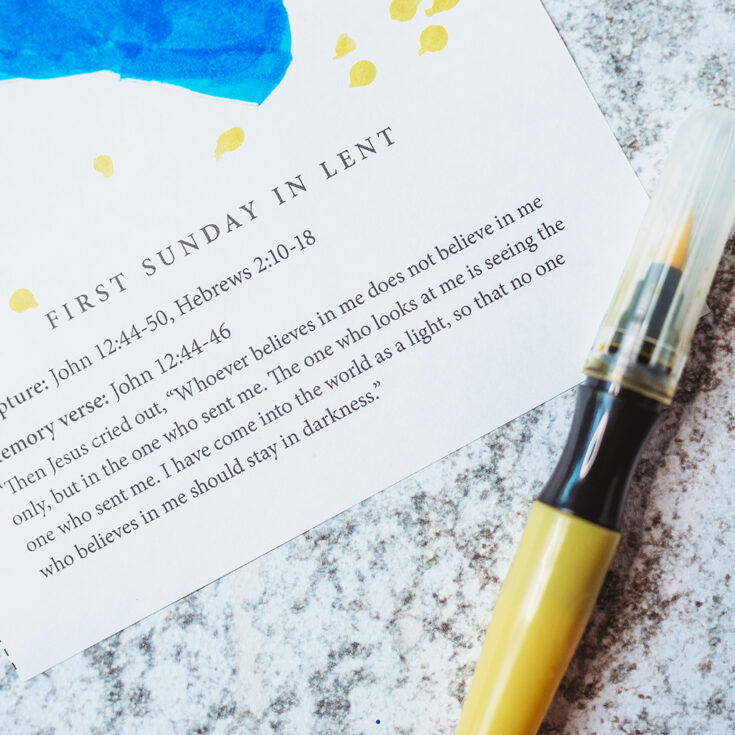 FIRST SUNDAY IN LENT
pture: John 12:44-50, Hebrews 2:10-18
emory verse: John 12:44-46
“Then Jesus cried out, “Whoever believes in me does not believe in me
only, but in the one who sent me. The one who looks at me is seeing the
one who sent me. I have come into the world as a light, so that no one
who believes in me should stay in darkness.”